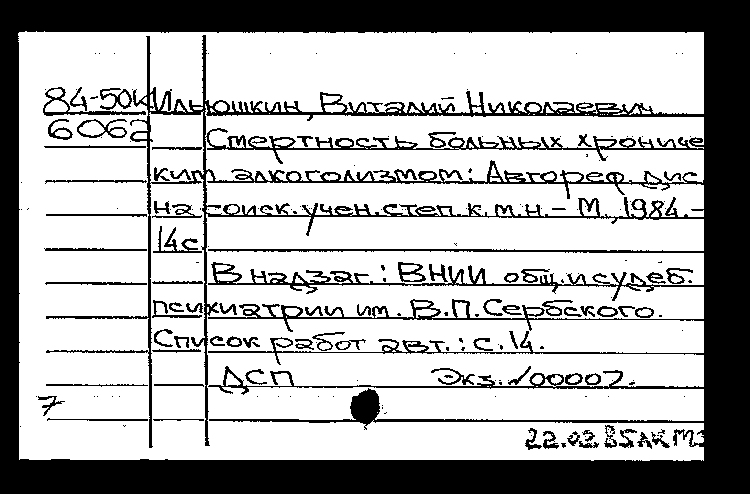 84-50к Ильюшкин, Виталий Николаевич.
6062 Смертность больных хрониче
ким алкоголизмом: Автореф. дис.
на соиск. учен. степ. к.м.н. – М., 1984. –
14с.
В надзаг.: ВНИИ общ. и судеб.
психиатрии им. В.П. Сербского.
Список работ авт.: с. 14.
ДСП Экз. №00007.
7
22.02.85